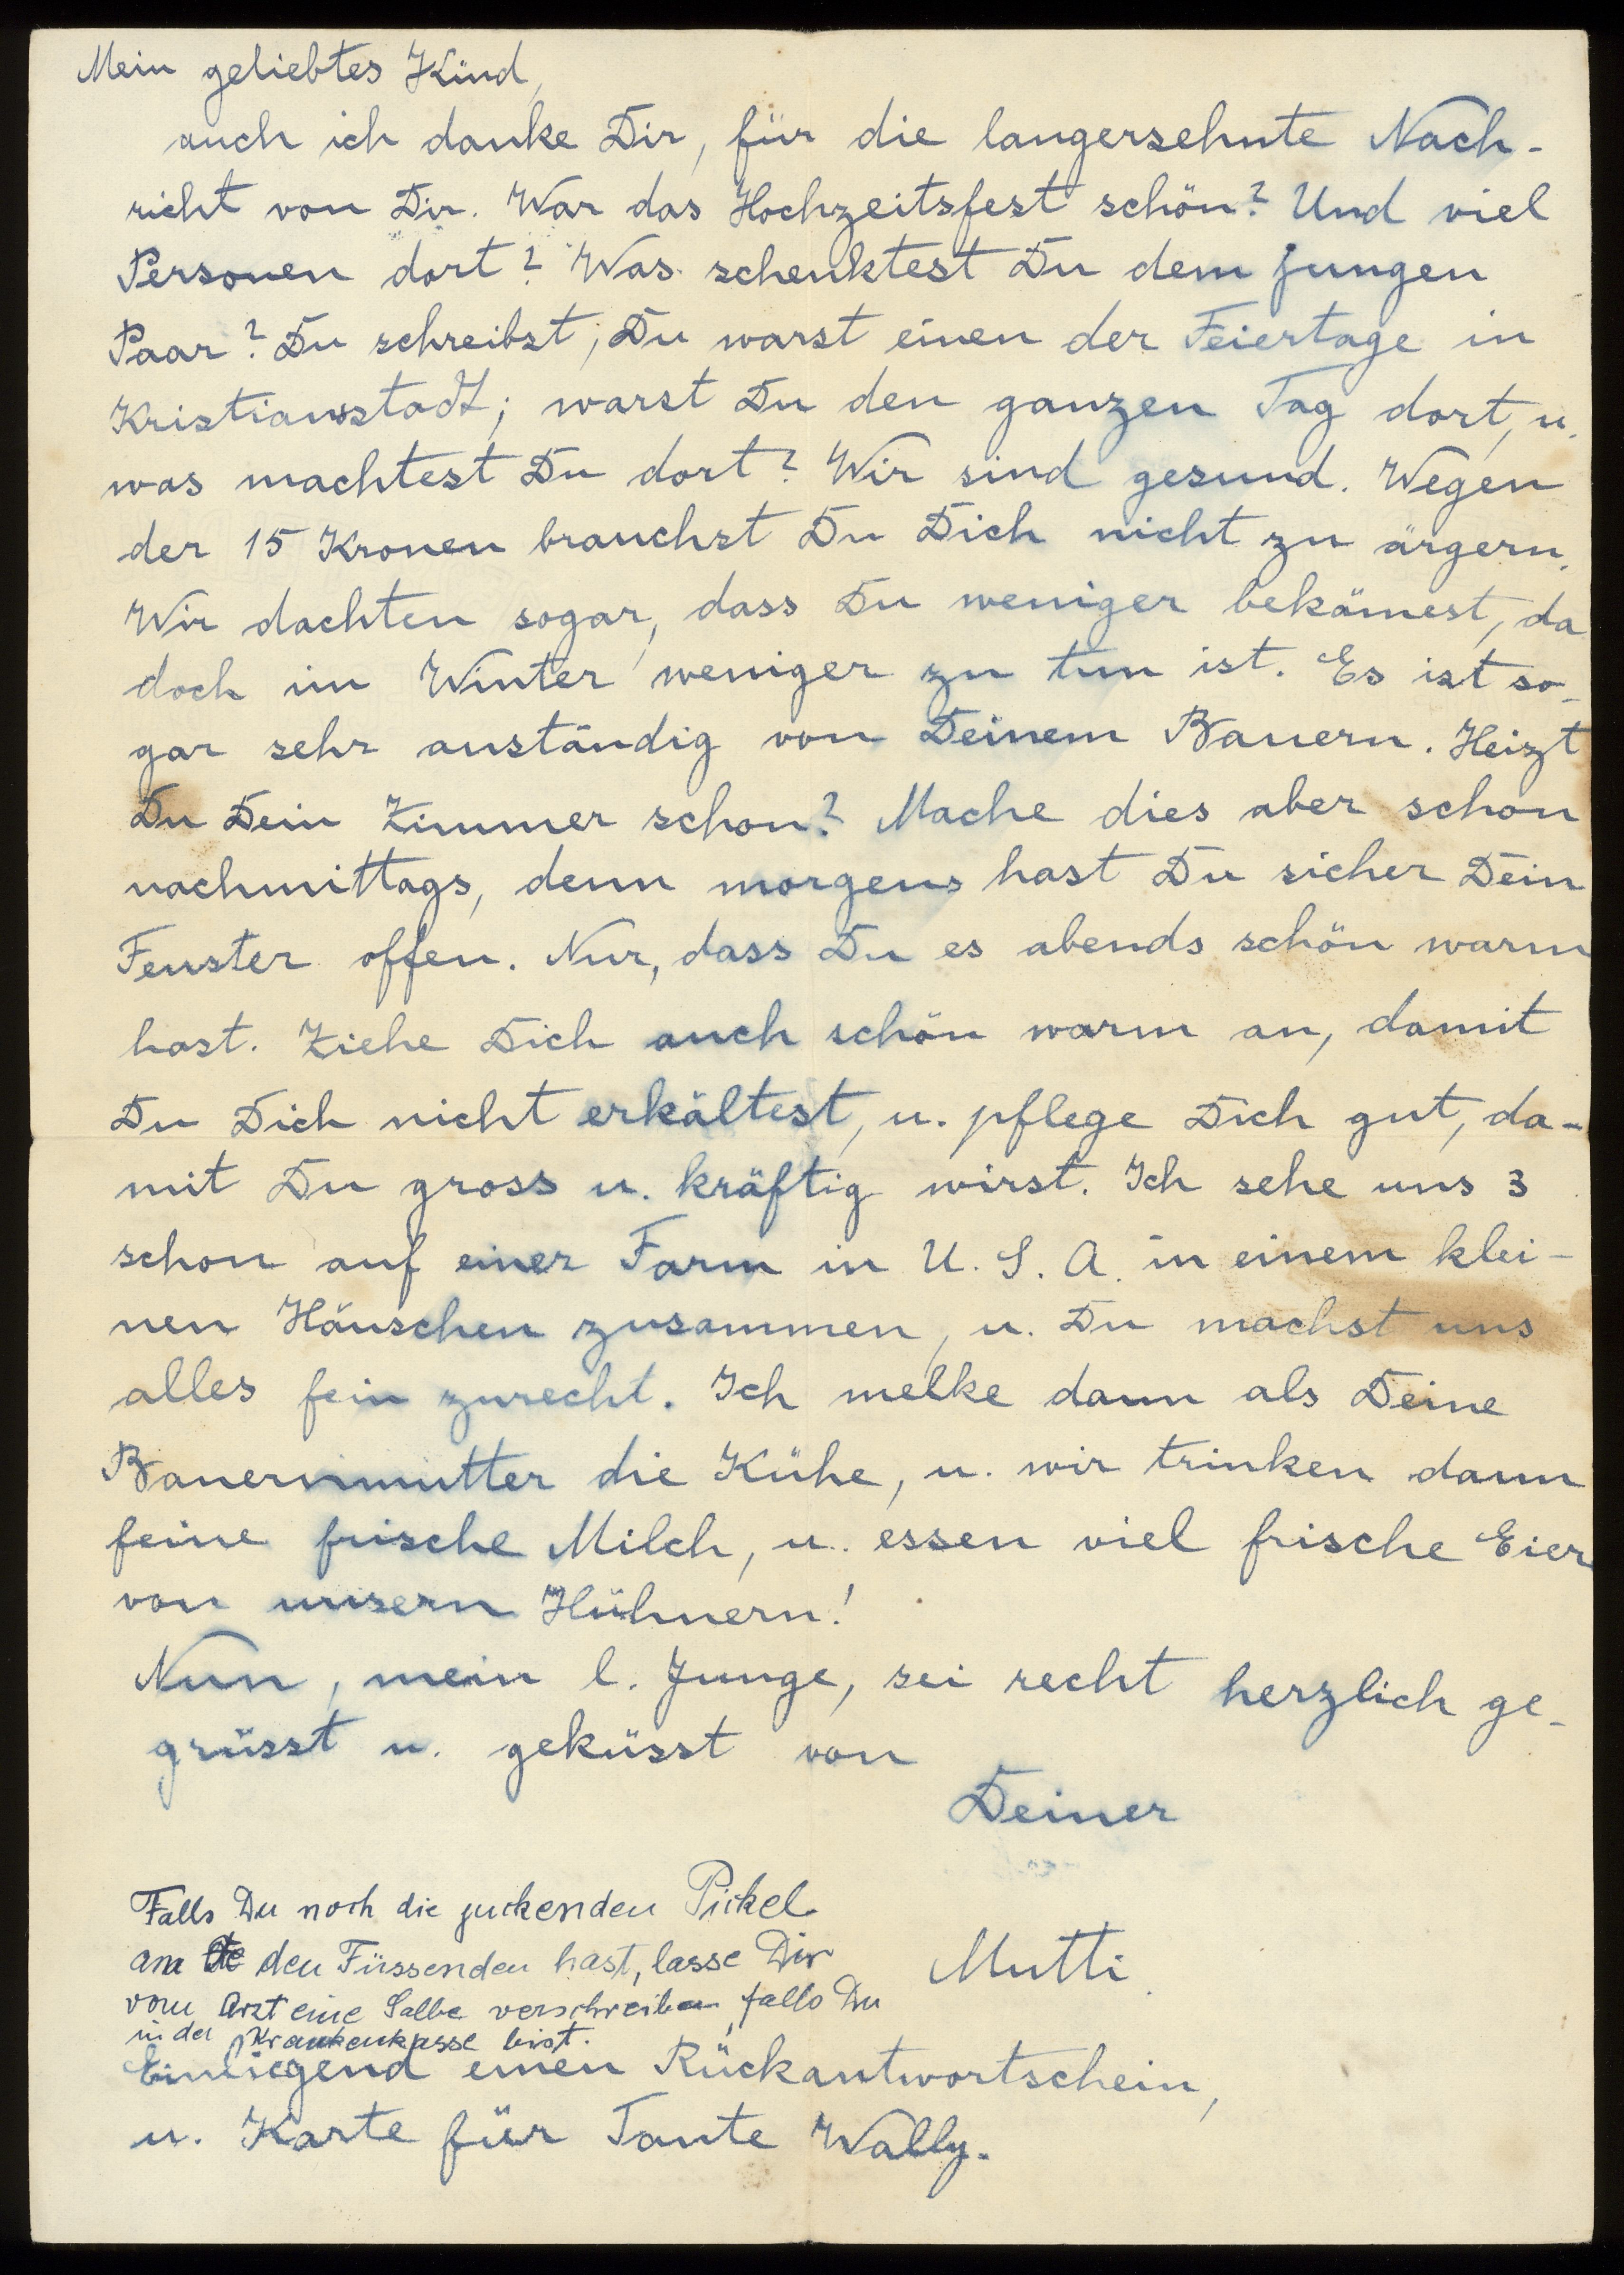 Mein geliebtes Kind,
auch ich danke Dir, für die langersehnte Nach-
richt von Dir. War das Hochzeitsfest schön? Und viel
Personen dort? Was schenktest Du dem jungen
Paar? Du schreibst, Du warst einen der Feiertage in
Kristiansstadt; warst Du den ganzen Tag dort, u.
was machtest Du dort? Wir sind gesund. Wegen
der 15 Kronen brauchst Du Dich nicht zu ärgern.
Wir dachten sogar, dass Du weniger bekämest, da
doch im Winter weniger zu tun ist. Es ist so-
gar sehr anständig von Deinem Bauern. Heizt
Du Dein Zimmer schon? Mache dies aber schon
nachmittags, denn morgens hast Du sicher Dein
Fenster offen. Nur, dass Du es abends schön warm
hast. Ziehe Dich auch schön warm an, damit
Du Dich nicht erkältest, u. pflege Dich gut, da-
mit Du gross u. kräftig wirst. Ich sehe uns 3
schon auf einer Farm in U. S. A. in einem klei-
nen Häuschen zusammen, u. Du machst uns
alles fein zurecht. Ich melke dann als Deine
Bauernmutter die Kühe, u. wir trinken dann
feine frische Milch, u. essen viel frische Eier
von unsern Hühnern!
Nun, mein l. Junge, sei recht herzlich ge-
grüsst u. geküsst von
Deiner
Mutti.
Falls Du noch die juckenden Pickel
am den Füssenden hast, lasse Dir
vom Arzt eine Salbe verschreiben, falls Du
in der Krankenkasse bist.
Einliegend einen Rückantwortschein,
u. Karte für Tante Wally.